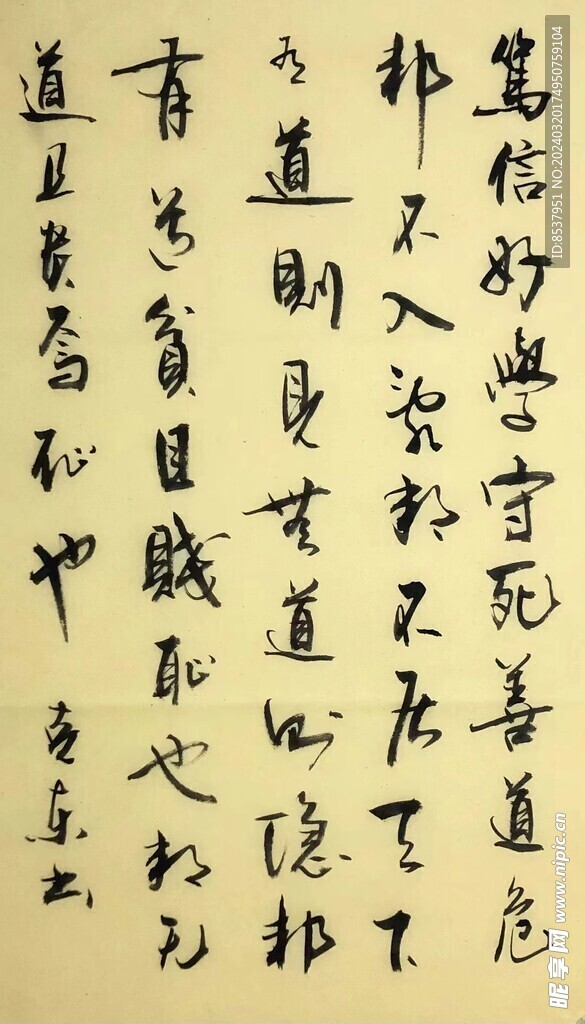 篤信好學守死善道危
邦不入亂邦不居天下
有道則見無道则隱邦
有道貧且賤恥也邦无
道且貴焉恥也 克东书
ID:8537951 NO:20240320174950759104
昵享网 www.nipic.cn